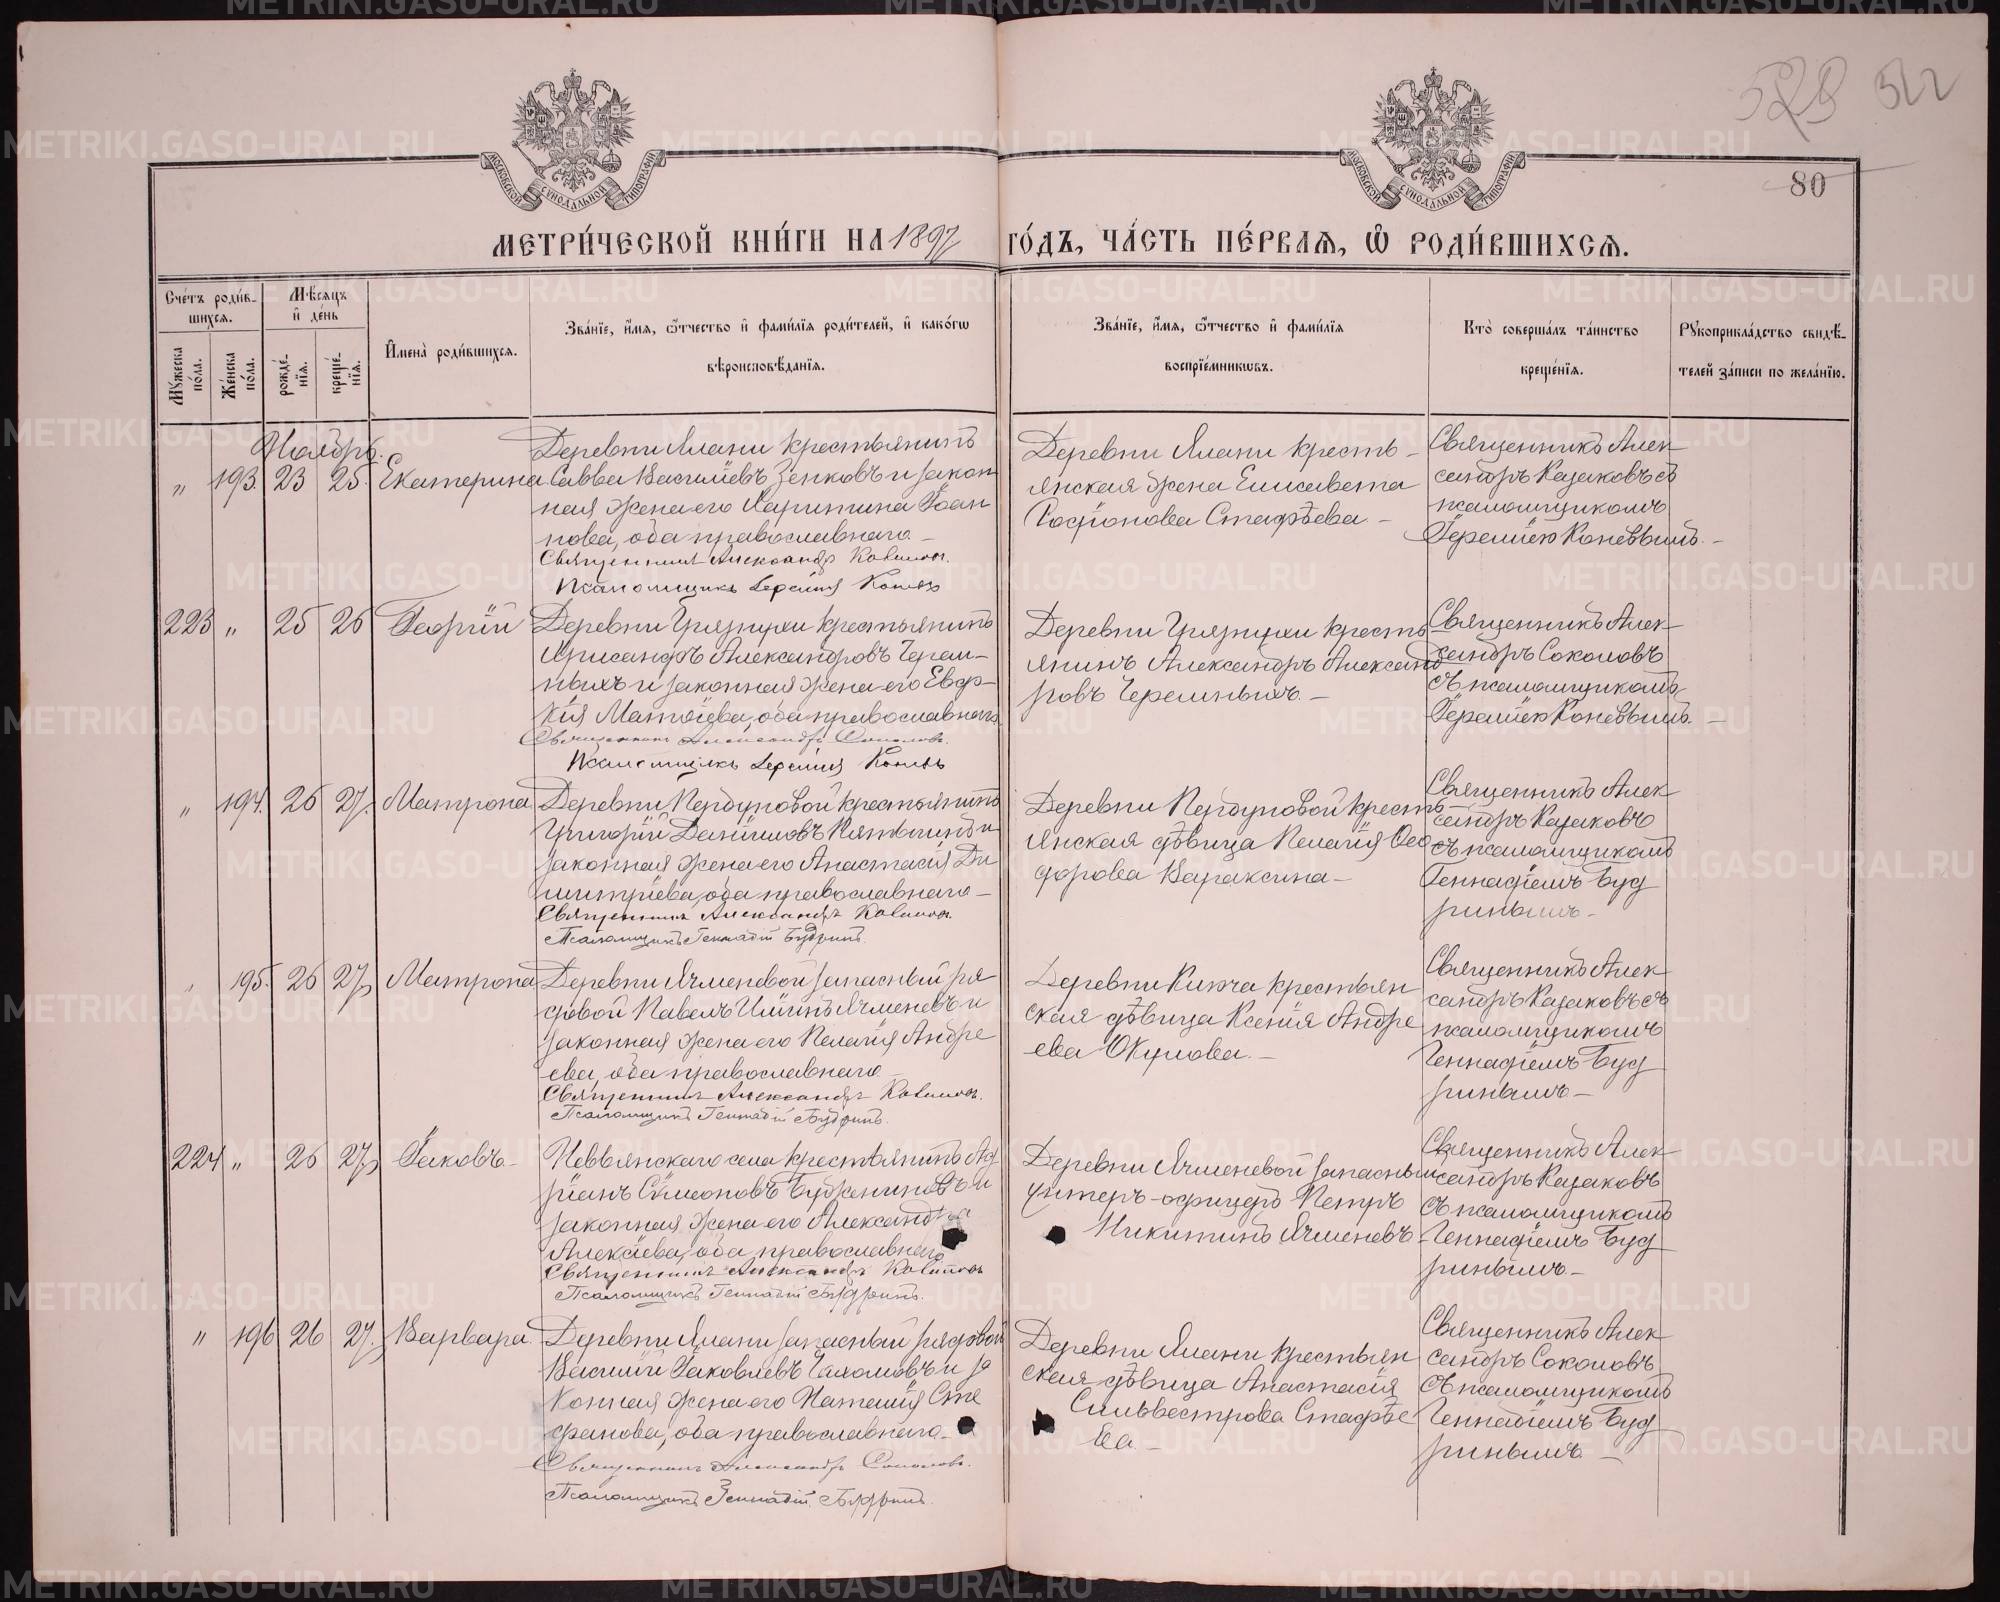 528 522
80
МОСКОВСКОЙ СѴНОДАЛЬНОЙ ТИПОГРАФІИ
МОСКОВСКОЙ СѴНОДАЛЬНОЙ ТИПОГРАФІИ
МЕТРИ́ЧЕСКОЙ КНИ́ГИ НА 1897 ГО́ДЪ, ЧА́СТЬ ПЕ́РВАЯ, Ѡ РОДИ́ВШИХСЯ.
Сче́тъ роди́вшихся.
Мꙋ́жеска по́ла.
Же́нска по́ла.
Мѣ́сяцъ и де́нь
рожде́нїя.
креще́нїя.
Имена̀ роди́вшихся.
Зва́нїе, и́мя, ѻ́тчество и фами́лїя роди́телей, и како́гѡ
вѣроисповѣ́данїя.
Зва́нїе, и́мя, ѻ́тчество и фами́лїя
воспрїе́мникѡвъ.
Кто̀ соверша́лъ та́инство
креще́нїя.
Рꙋкоприкла́дство свидѣ́-
телей за́писи по жела́нїю.
Ноябрь.
„ 193. 23 25. Екатерина.
Деревни Ялани крестьянинъ
Савва Васильевъ Зенковъ и закон
ная жена его Харитина Іоан
нова, оба православнаго. –
Священникъ Александръ Казаковъ.
Псаломщикъ Іеремія Коневъ
Деревни Ялани кресть-
янская жена Елисавета
Родіонова Стафѣева. –
Священникъ Алек-
сандръ Казаковъ съ
псаломщикомъ
Іереміею Коневымъ. –
223 „ 25 26 Георгій
Деревни Грязнухи крестьянинъ
Хрисанфъ Александровъ Черем-
ныхъ и законная жена его Евдо-
кія Матѳіева, оба православнаго
Священникъ Александръ Соколовъ.
Псаломщикъ Іеремія Коневъ
Деревни Грязнухи кресть
янинъ Александръ Александ
ровъ Черемныхъ. –
Священникъ Алек-
сандръ Соколовъ
съ псаломщикомъ
Іереміею Коневымъ. –
„ 194. 26 27. Матрона
Григорій Даніиловъ
законная жена его Анастасія Ди
митріева, оба православнаго –
Священникъ Александръ Казаковъ.
Псаломщикъ Геннадій Будринъ.
янская дѣвица Пелагія Ѳео
дорова Вараксина –
Священникъ Алек
сандръ Казаковъ
съ псаломщикомъ
Геннадіемъ Буд
ринымъ –
„ 195. 26 27. Матрона
Деревни Ячменевой запасный ря
довой Павелъ Ильинъ Ячменевъ и
законная жена его Пелагія Андре
ева, оба православнаго
Священникъ Александръ Казаковъ.
Псаломщикъ Геннадій Будринъ.
Деревни Кипча крестьян
ская дѣвица Ксенія Андре
ева Окулова. –
Священникъ Алек
сандръ Казаковъ съ
псаломщикомъ
Геннадіемъ Буд
ринымъ –
224 „ 26 27. Іаковъ –
Невьянскаго села крестьянинъ Ад
ріанъ Сѵмеоновъ и
законная жена его Александра
Алексіева, оба православнаго
Священникъ Александръ Казаковъ
Псаломщикъ Геннадій Будринъ.
Деревни Ячменевой запасный
унтеръ-офицеръ Петръ
Никитинъ Ячменевъ
Священникъ Алек
сандръ Казаковъ
съ псаломщикомъ
Геннадіемъ Буд
ринымъ –
„ 196 26 27. Варвара.
Деревни Ялани запасный рядовой
Василій Іаковлевъ и за
конная жена его Наталія Сте
фанова, оба православнаго –
Священникъ Александръ Соколовъ.
Псаломщикъ Геннадій Будринъ.
Деревни Ялани крестьян
ская дѣвица Анастасія
Сильвестрова Стафѣе
ва –
Священникъ Алек
сандръ Соколовъ
съ псаломщикомъ
Геннадіемъ Буд
ринымъ –
METRIKI.GASO-URAL.RU